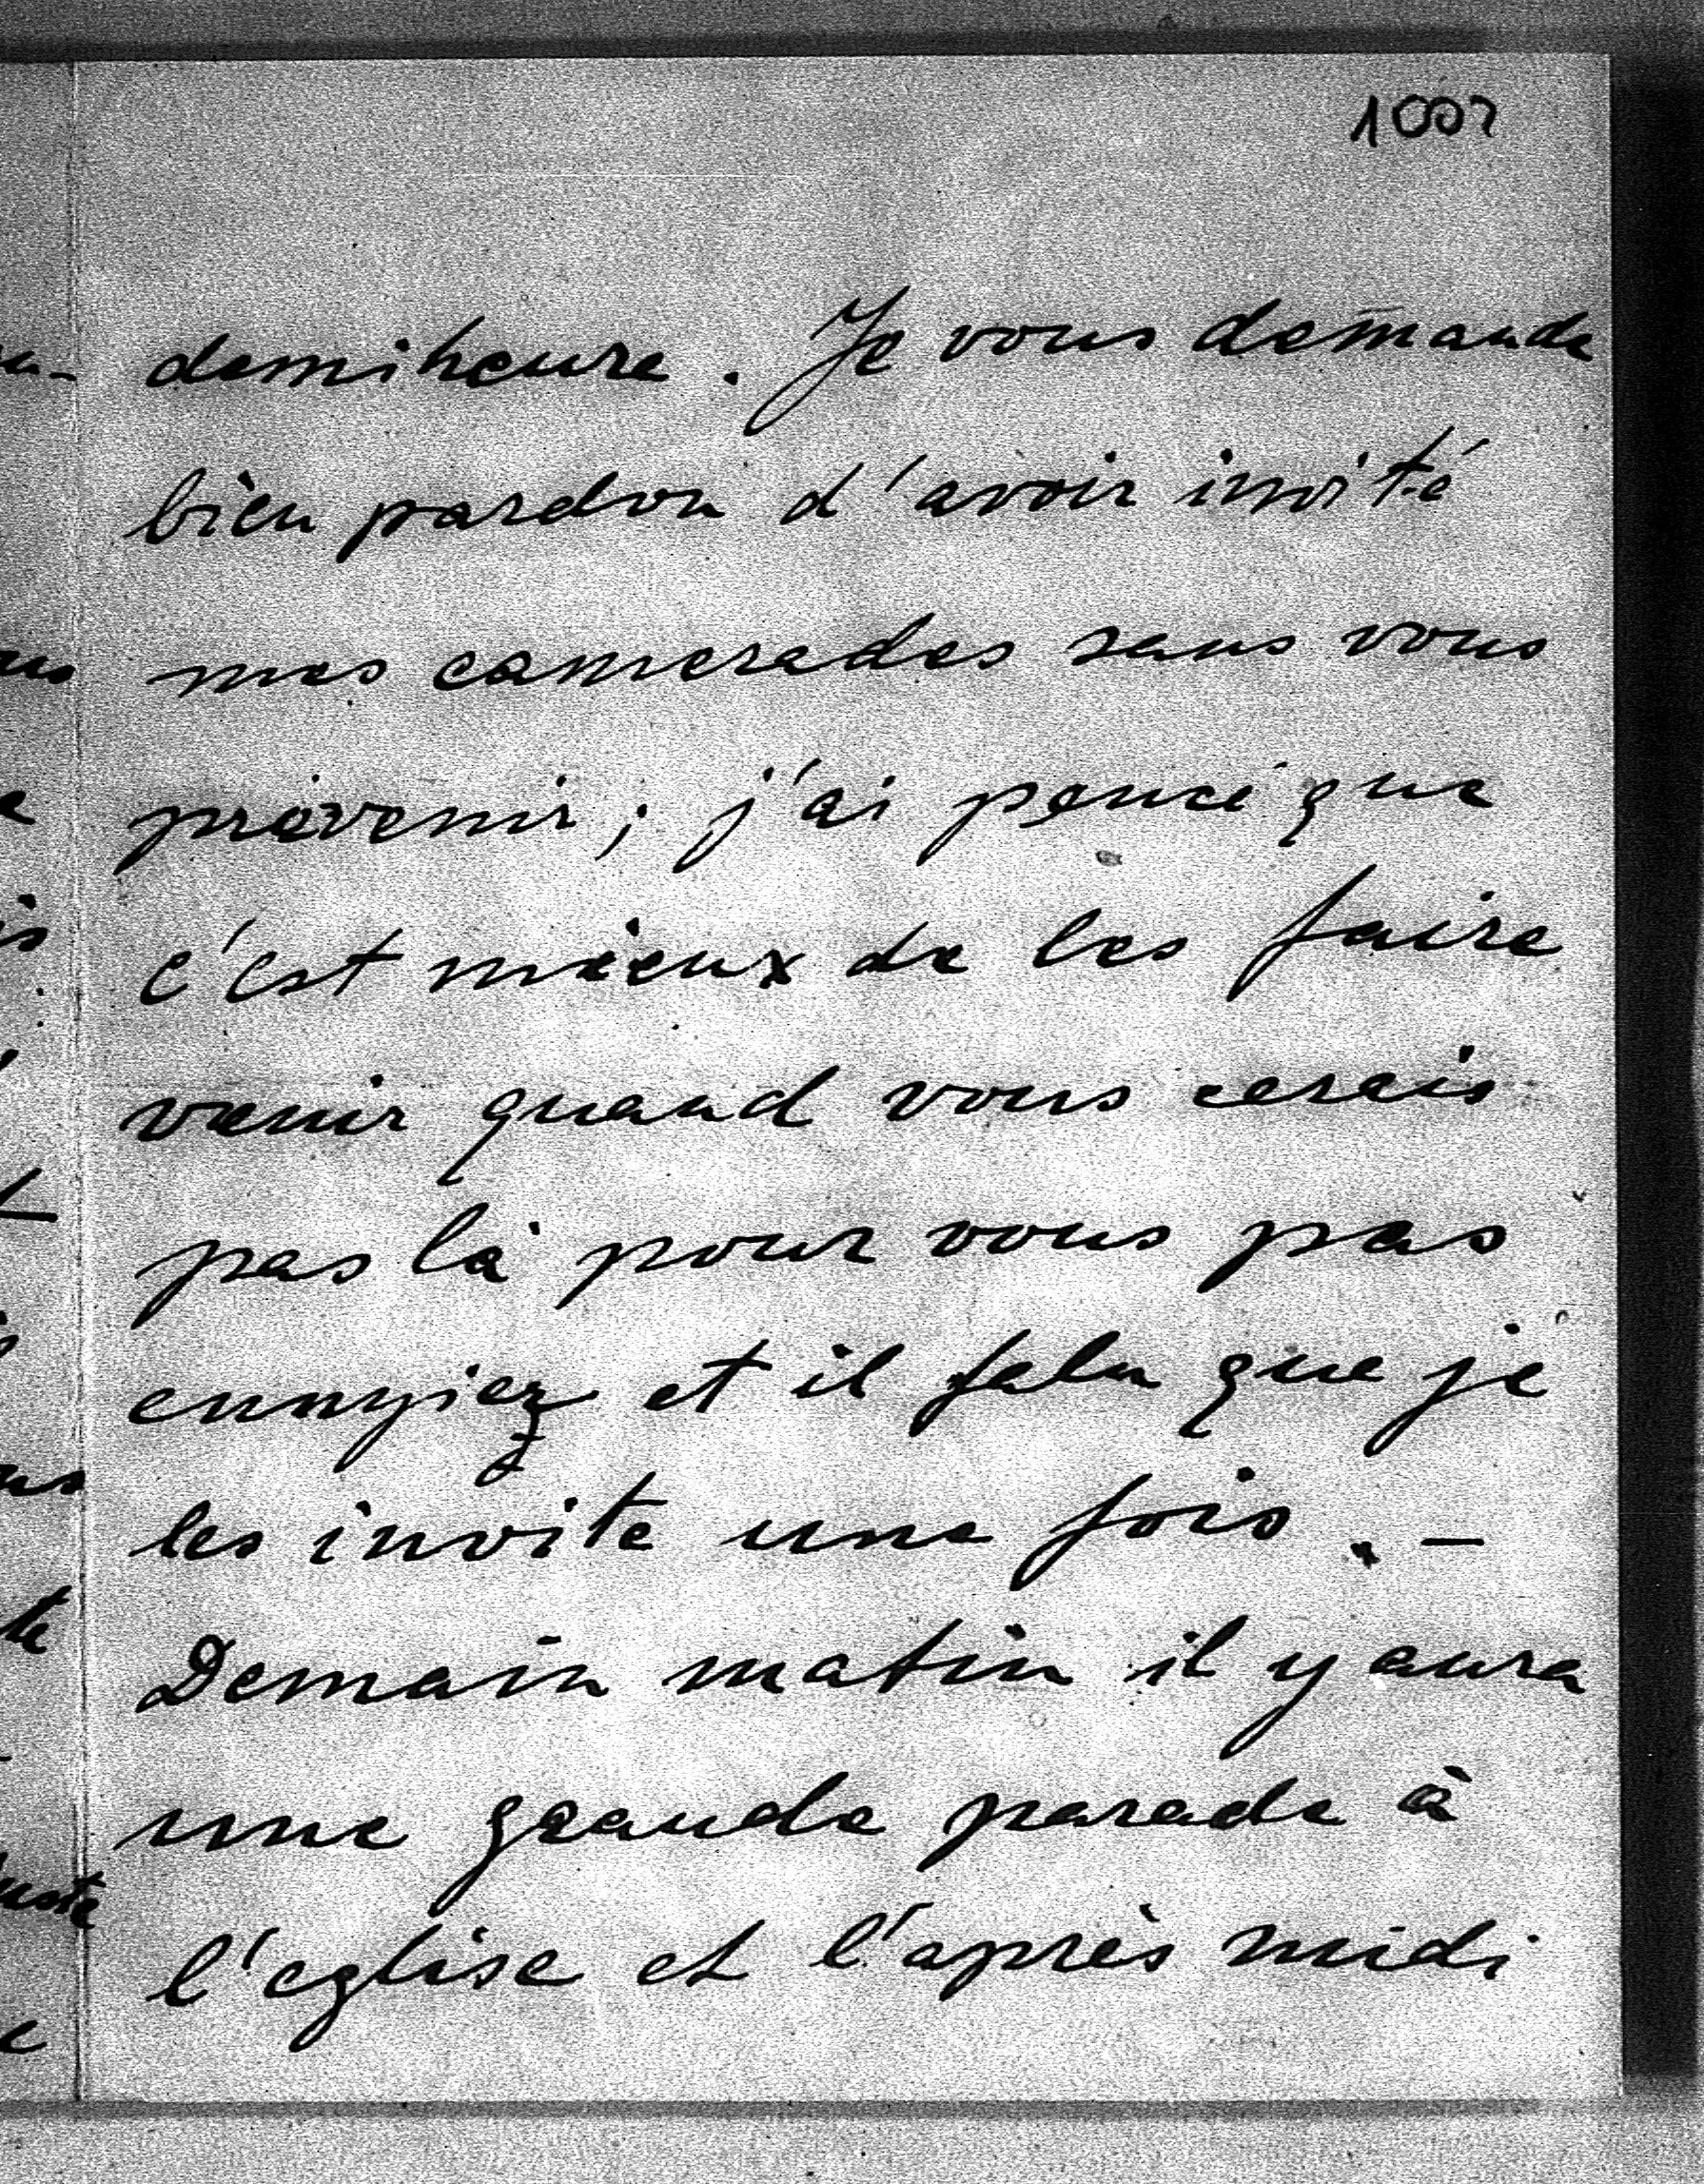 1007
demiheure. Je vous demande
bien pardon d'avoir invité
mes camerades sans vous
prévenir; j'ai pencé que
c'est mieux de les faire
venir quand vous cerais
pas là pour vous pas
ennyiez et il falu que je
les invite une fois. —
Demain matin il y aura
une grande parade à
l'eglise et l'après midi